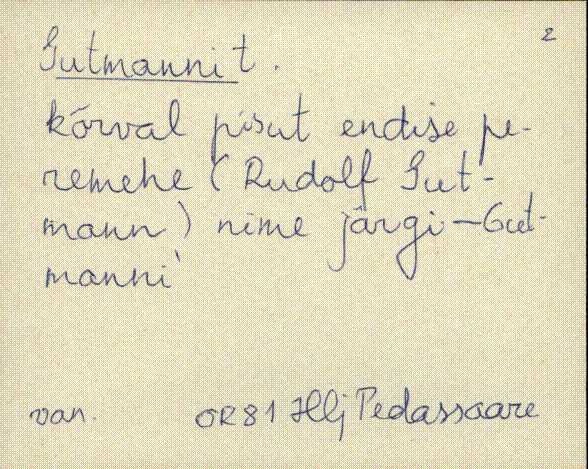 2
Gutmanni t.
kõrval pisut endise pe-
remehe (Rudolf Gut-
mann) nime järgi - Gut-
manni
van. OR 81 Hlj Pedassaare